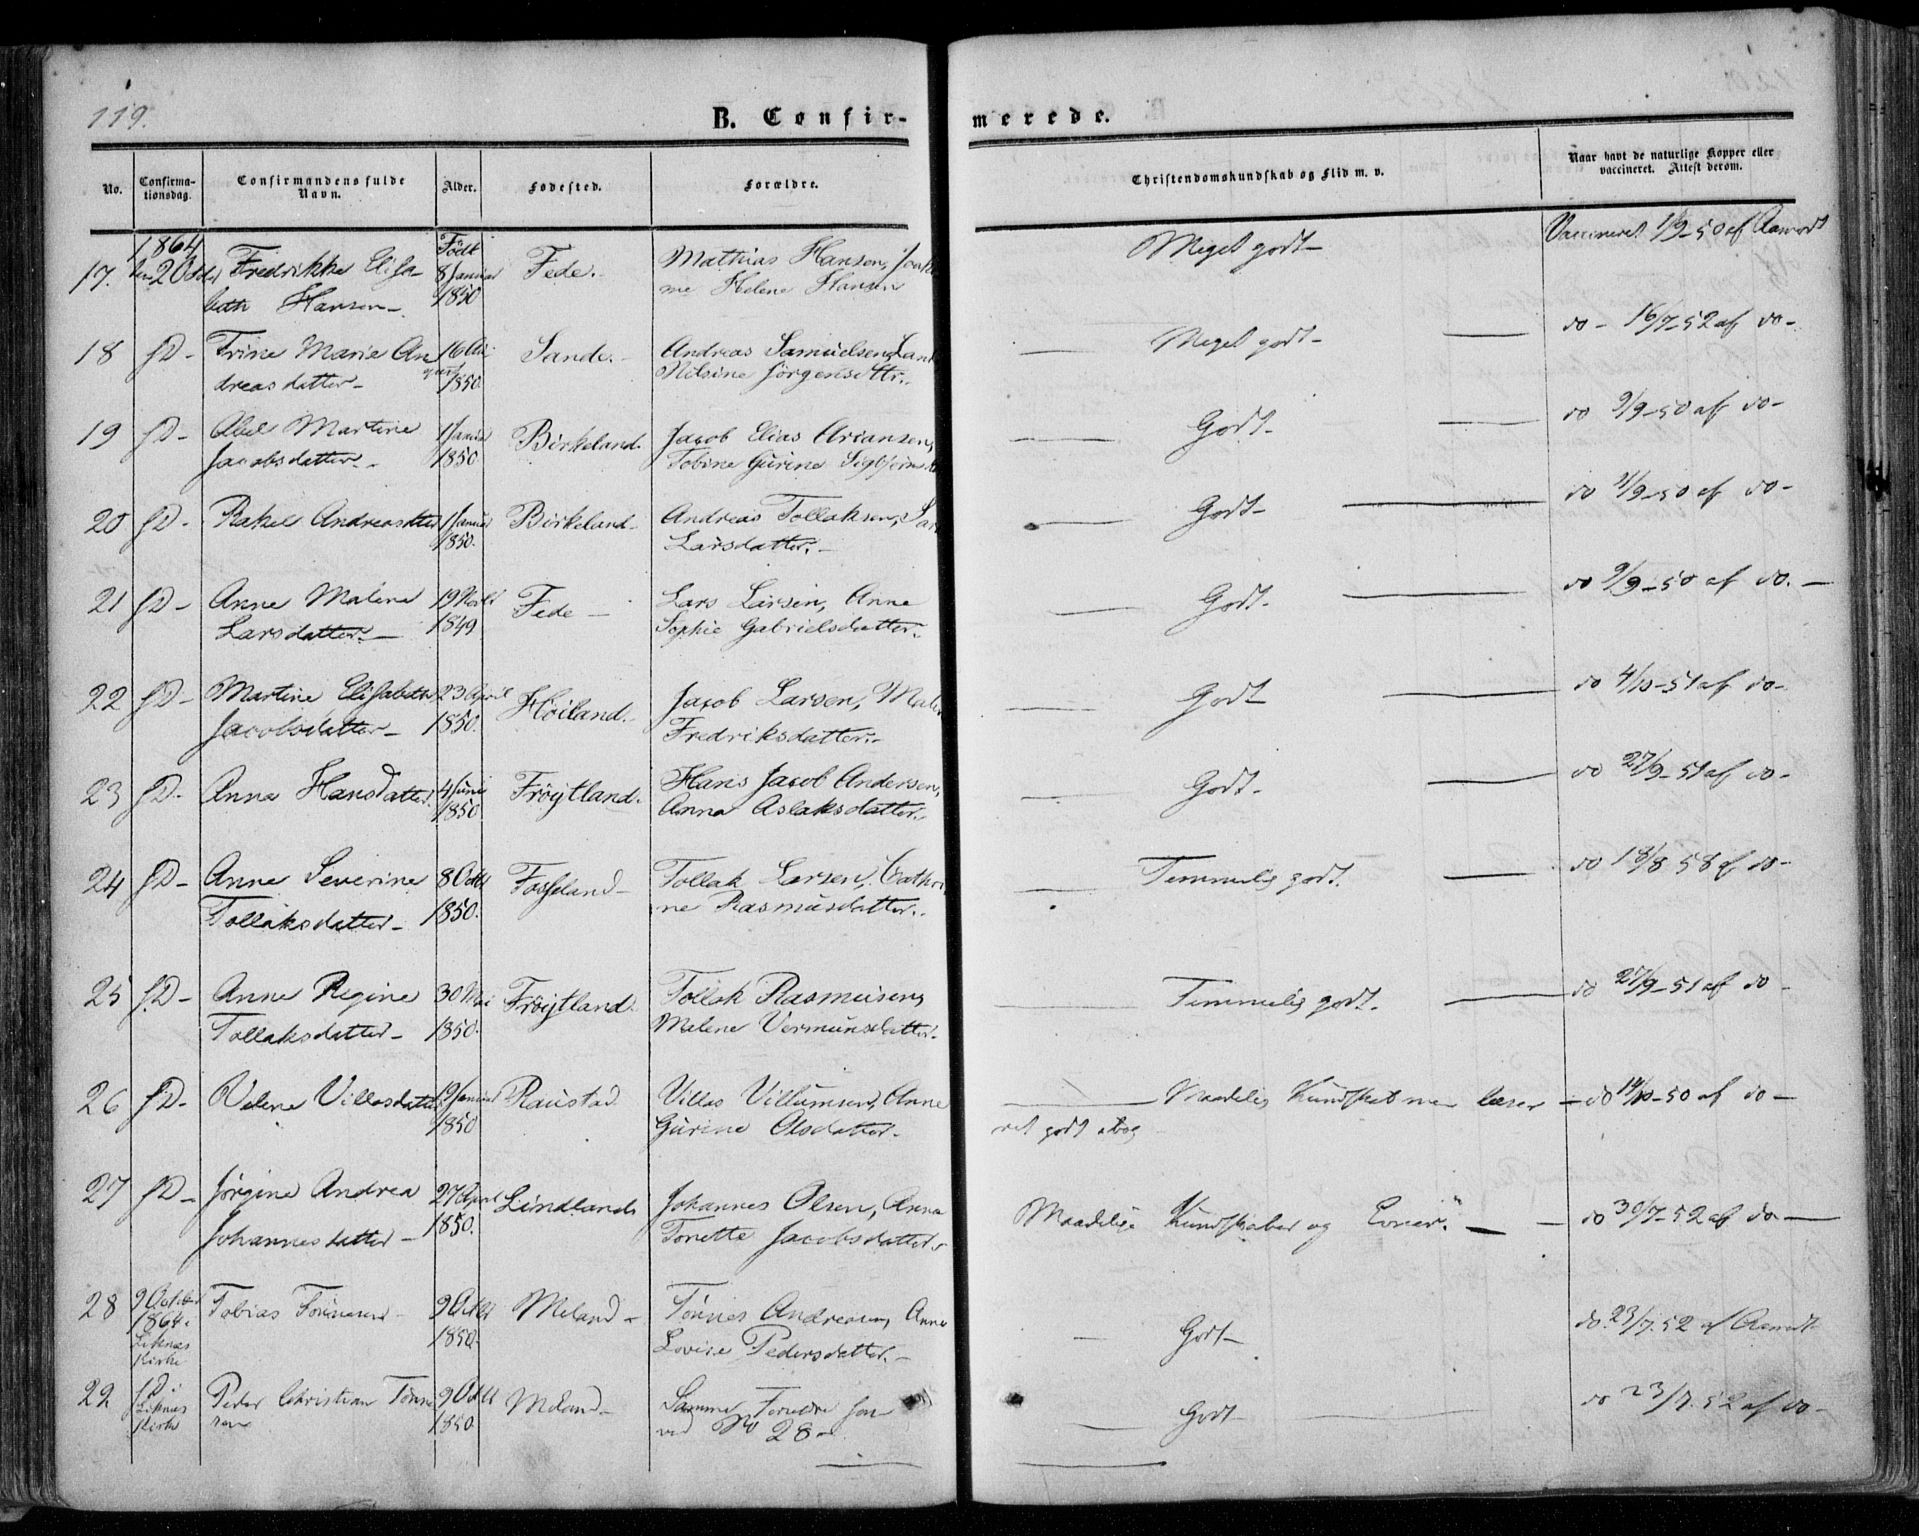 119.
B. Confir-
merede.
No.
Confirma-
tionsdag.
Confirmandens fulde
Navn.
Alder.
Fødested.
Forældre.
Christendomskundskab og Flid m. v.
Naar havt de naturlige Kopper eller
vaccineret. Attest derom.
1864 Født
17. den 2 Octbr Fredrikke Elisa- 8 Januar Fede. Mathias Hansen, Meget godt- Vaccineret 1/9-50 af Aamodt
beth Hansen- 1850 Helene Hansen
18 fD- Trine Marie An 16 Sande.- Andreas Samuelsen, Meget godt- do- 16/7-52 af do-
dreasdatter- 1850. Nilsine Jørgensdttr.
19 fD- Abel Martine 1 Januar Birkeland. Jacob Elias Ariansen, Godt- do 9/9-50 af do-
Jacobsdatter.- 1850 Tobine Gurine
20 fD- Rakel Andreasdtter 1 Januar Birkeland- Andreas Tollaksen, Godt- do 9/9-50 af do-
1850. Larsdatter.-
21 fD- Anne Malene 19 Novbr Fede- Lars Larsen, Anne Godt- do 9/9-50 af do.-
Larsdatter.- 1849 Sophie Gabrielsdatter.
22 fD- Martine Elisabeth 23 April Høiland.- Jacob Larsen, Godt do 4/10-51 af do-
Jacobsdatter- 1850. Fredriksdatter.-
23 fD- Anna Hansdatter. 4 Juni Frøytland. Hans Jacob Andersen, Godt- do 27/9-51 af do-
1850 Anna Aslaksdatter.
24 fD- Anne Severine 8 Octbr Fosseland- Tollak Larsen, Cathri Temmelig godt. do 18/8 58 af do-
Tollaksdatter- 1850. ne Rasmusdatter.
25 fD- Anne Regine 30 Mai Frøytland. Tollak Rasmusen, Temmelig godt. do 27/9-51 af do-
Tollaksdatter- 1850. Malene Vermunsdatter.
26 fD- Villasdatter 19 Januar Raustad Villas Villumsen, Anne Maadelig Kundskab men læser - do 19/10-50 af do-
1850 Gurine Olsdatter- ret godt i bog
27 fD- Jørgine Andrea 27 April Lindland Johannes Olsen, Anna Maadelige Kundskaber og Evner.- do 30/7-52 af do-
Johannesdatter- 1850. Tonette Jacobsdatter
28 9 October Tobias Tønnesen- 9 Octbr Meland- Tønnes Andreasen, Anne Godt- do. 23/7.52 af Aamodt
1864 i 1850. Lovise Pedersdatter.-
Liknes
Kirke
29. fD i Peder Christian Tønne 9 Octbr Meland- Samme Forældre som Godt- do 23/7.52 af do-
Liknes sen 1850. ved No 28-
Kirke